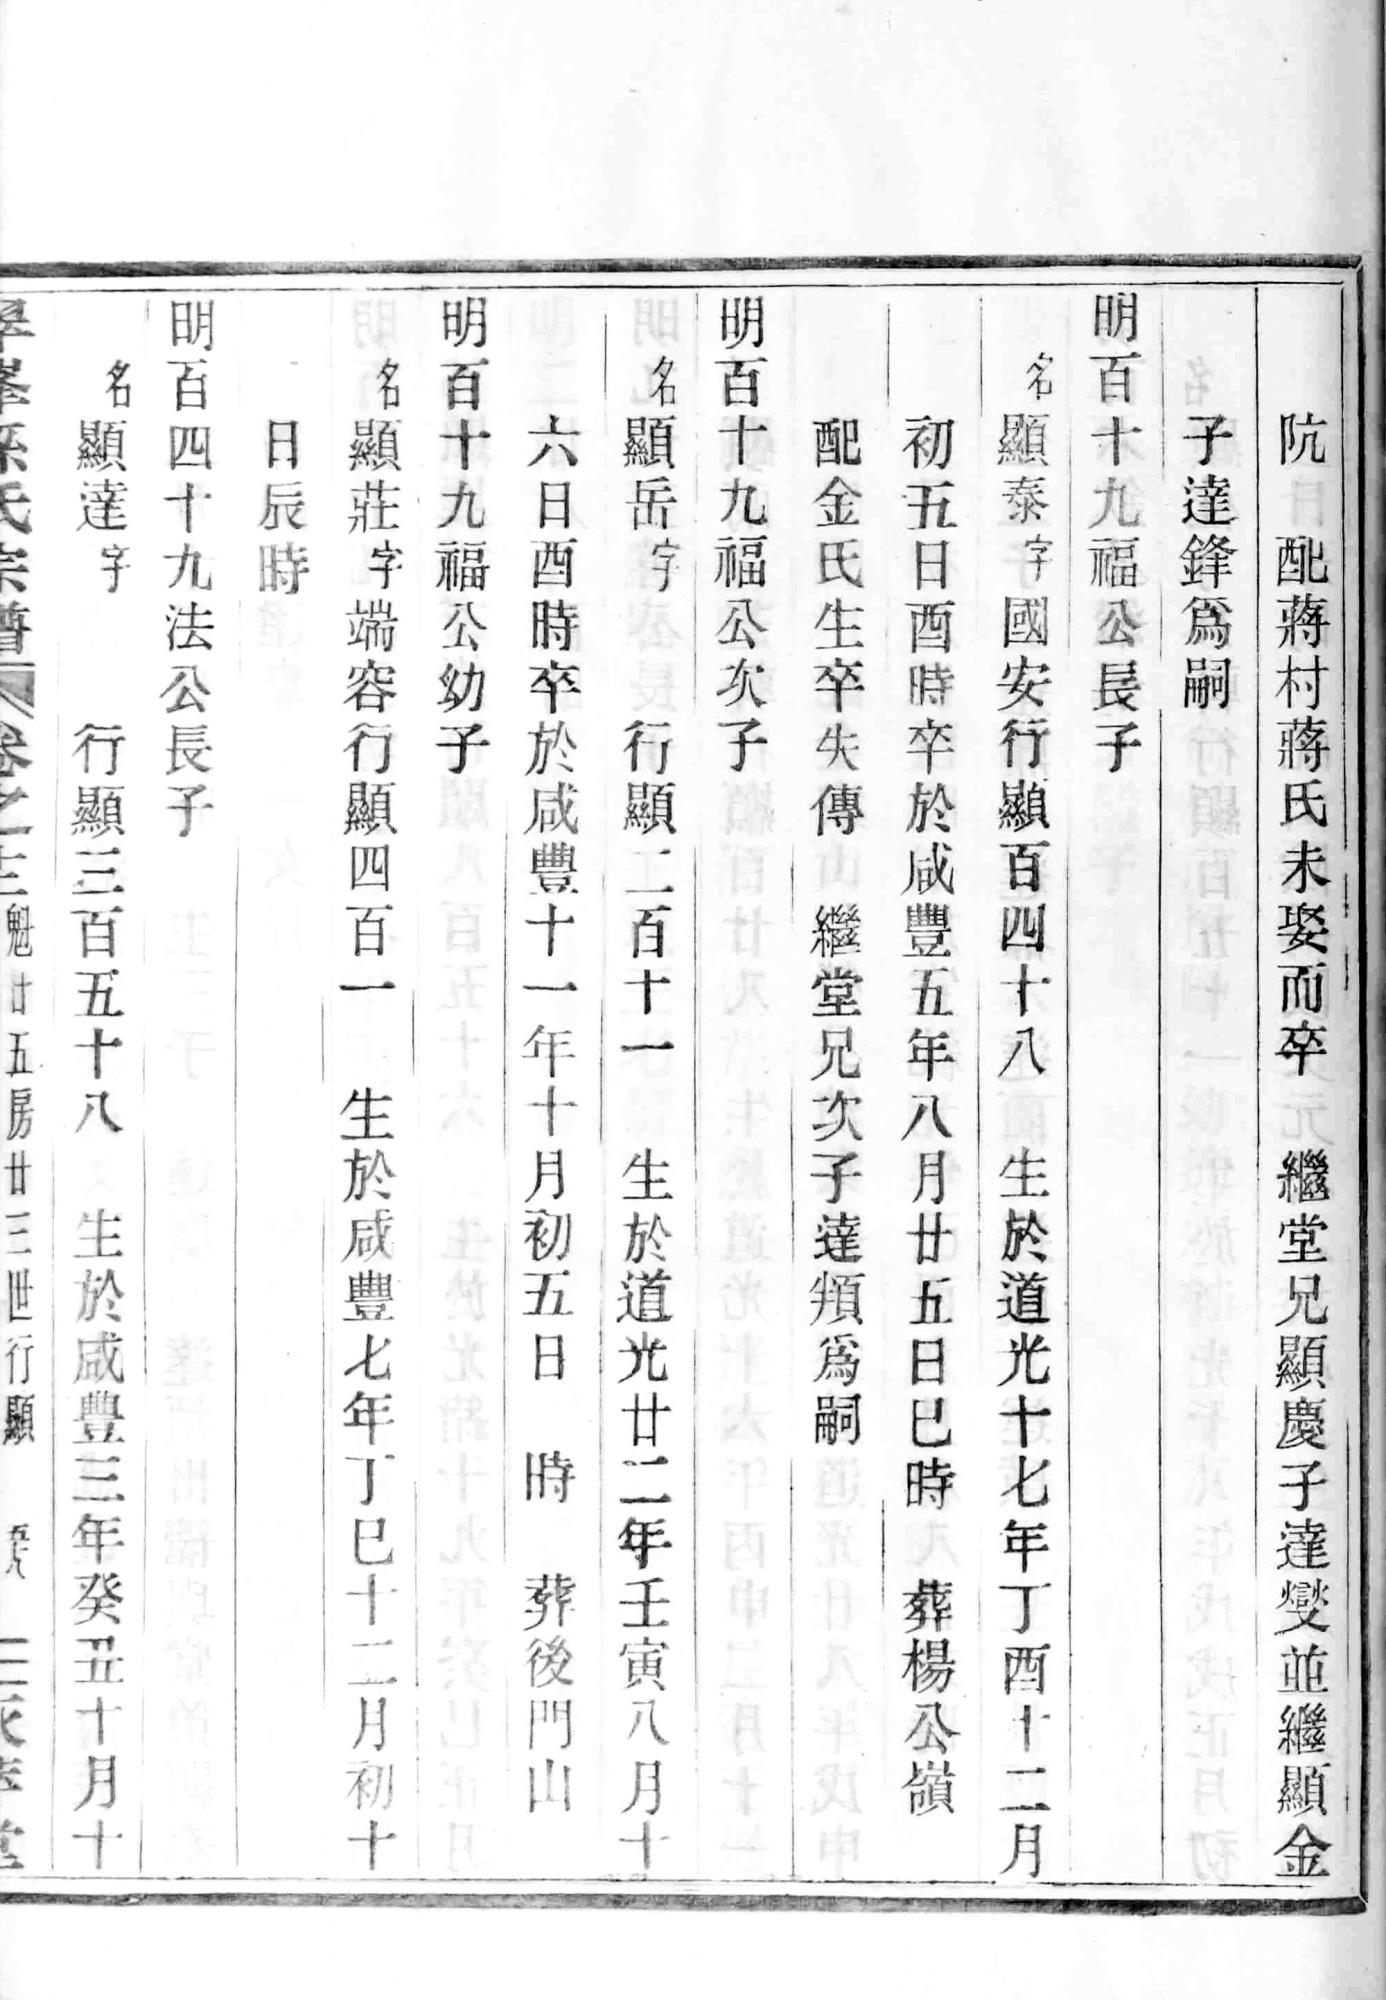 阬　配蔣村蔣氏未娶而卒　繼堂兄顯慶子達燮並繼顯金
子達鋒爲嗣
明百十九福公長子
名顯泰字國安行顯百四十八　生於道光十七年丁酉十二月
初五日酉時卒於咸豐五年八月廿五日巳時　葬楊公嶺
配金氏生卒失傳　繼堂兄次子達頫爲嗣
明百十九福公次子
名顯岳字　行顯二百十一　生於道光廿二年壬寅八月十
六日酉時卒於咸豐十一年十月初五日　時　葬後門山
明百十九福公幼子
名顯莊字端容行顯四百一　生於咸豐七年丁巳十二月初十
日辰時
明百四十九法公長子
名顯達字　行顯三百五十八　生於咸豐三年癸丑十月十
孫氏宗譜　卷之　魁廿五房廿三世行顯　堂